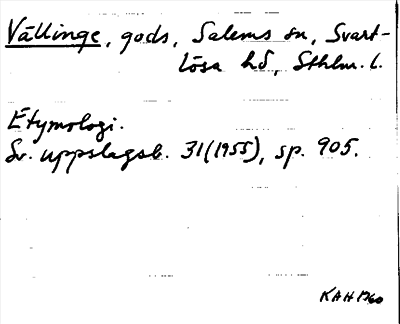 Vällinge, gods, Salems sn, Svart-
lösa hd, Sthlm. l.
Etymologi.
Sv. uppslagsb. 31(1955), sp. 905.
KAH 1960